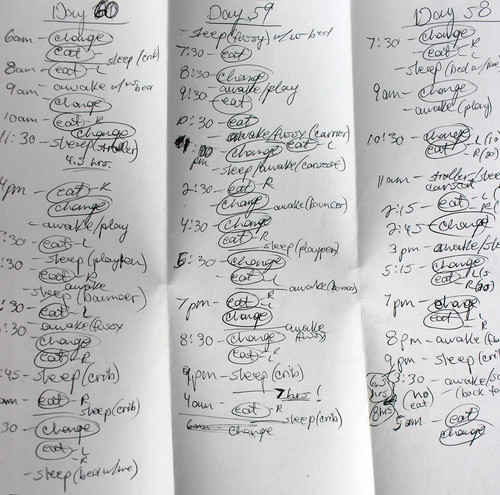 Day 60
6am - change
eat -
sleep (crib)
8am - eat - L
9am - awake w/ w-bed
change
10am - eat - R
change
11:30 - sleep (stroller)
4.5 hrs.
4pm - eat - R
change
- awake/play
:30 - eat - L
:30 - sleep (playpen)
eat - R
awake
- sleep (bouncer)
:30 - eat - L
:30 - awake/fussy
change
eat - R
:45 - sleep (crib)
am - eat - R
sleep (crib)
:30 - change
eat - L
- R
- sleep (bed w/me)
Day 59
- sleep (fussy) w/ w-bed
7:30 - eat
8:30 change
9:30 - awake/play
eat
10:30 - eat
awake/fussy (carrier)
change eat - L
pm - sleep/awake (carseat)
2:30 - eat - R
change
awake (bouncer)
4:30 - change
eat - R
sleep (playpen)
5:30 - change
- eat - L
- awake (bounce)
7pm - eat - L
change
8:30 - change
awake
(fussy)
eat - R
9pm - sleep (crib)
7 hrs!
4am - eat - R
sleep (crib)
6am - change
Day 58
7:30 - change
- eat - R
- sleep (bed w/me)
9am - change
- awake (play)
10:30 - change
eat - L (10
R (20)
11am - stroller/slee
carseat
2:15 - eat - L
2:45 - change
3pm - awake/sl
5:15 - change
eat - L (5
R (20)
7pm - change
eat - L
8pm - awake (fu
9pm - sleep (crib
6.5 hrs
3:30 - awake/so
(no eat)
(back to
8 hrs
5am - eat
change